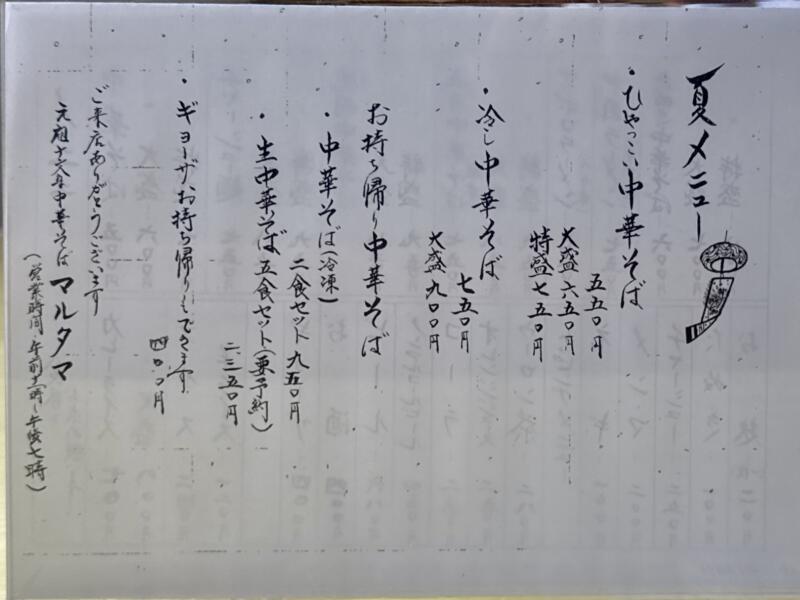 夏メニュー
・ひやっこい中華そば
五五〇円
大盛 六五〇円
特盛 七五〇円
・冷し中華そば
七五〇円
大盛 九〇〇円
お持ち帰り中華そば
・中華そば(冷凍)
二食セット 九五〇円
・生中華そば 五食セット(要予約)
二、三五〇円
・ギョーザお持ち帰りもできます
四〇〇円
ご来店ありがとうございます
元祖十文字中華そば マルタマ
(営業時間・午前十一時〜午後七時)